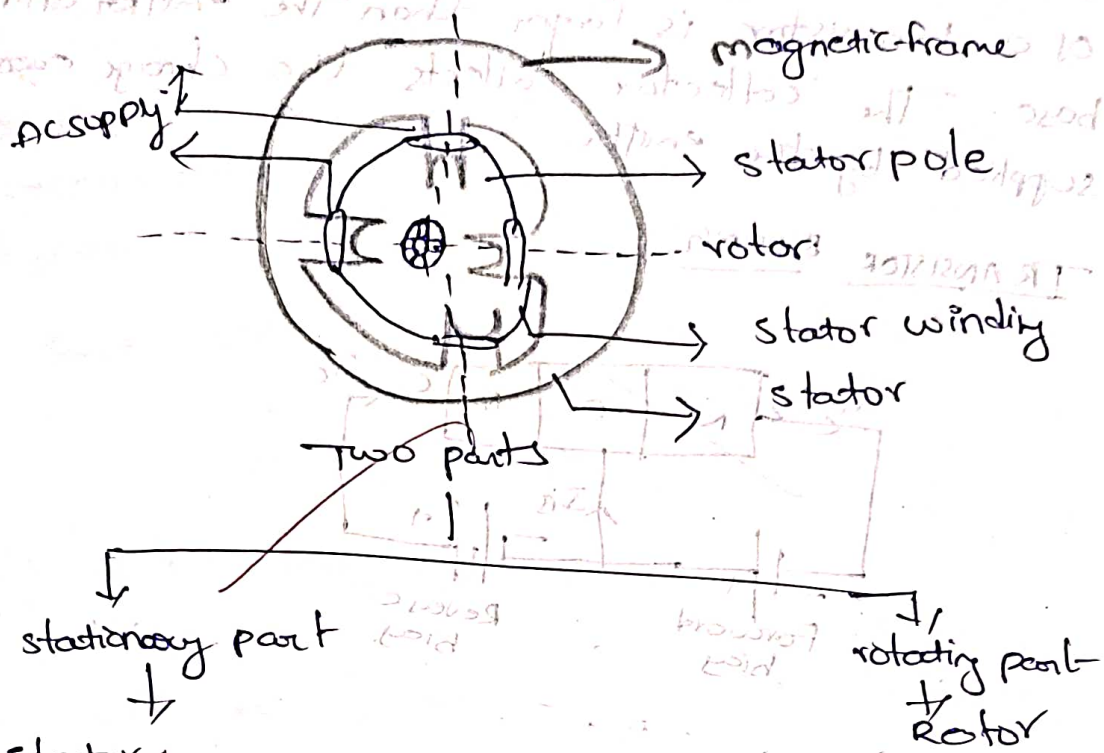 magnetic-frame
AC supply
stator pole
rotor
stator winding
stator
Two parts
stationary part
rotating part
Rotor